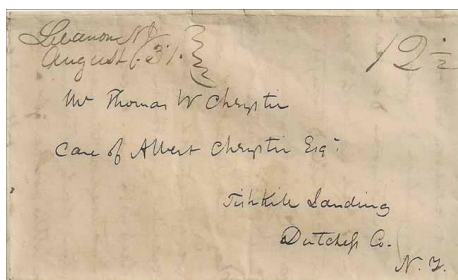 Lebanon NJ
August 31.
12½
Mr Thomas W Chrystie
Care of Albert Chrystie Esqr
Fishkill Landing
Dutchess Co.
N. Y.